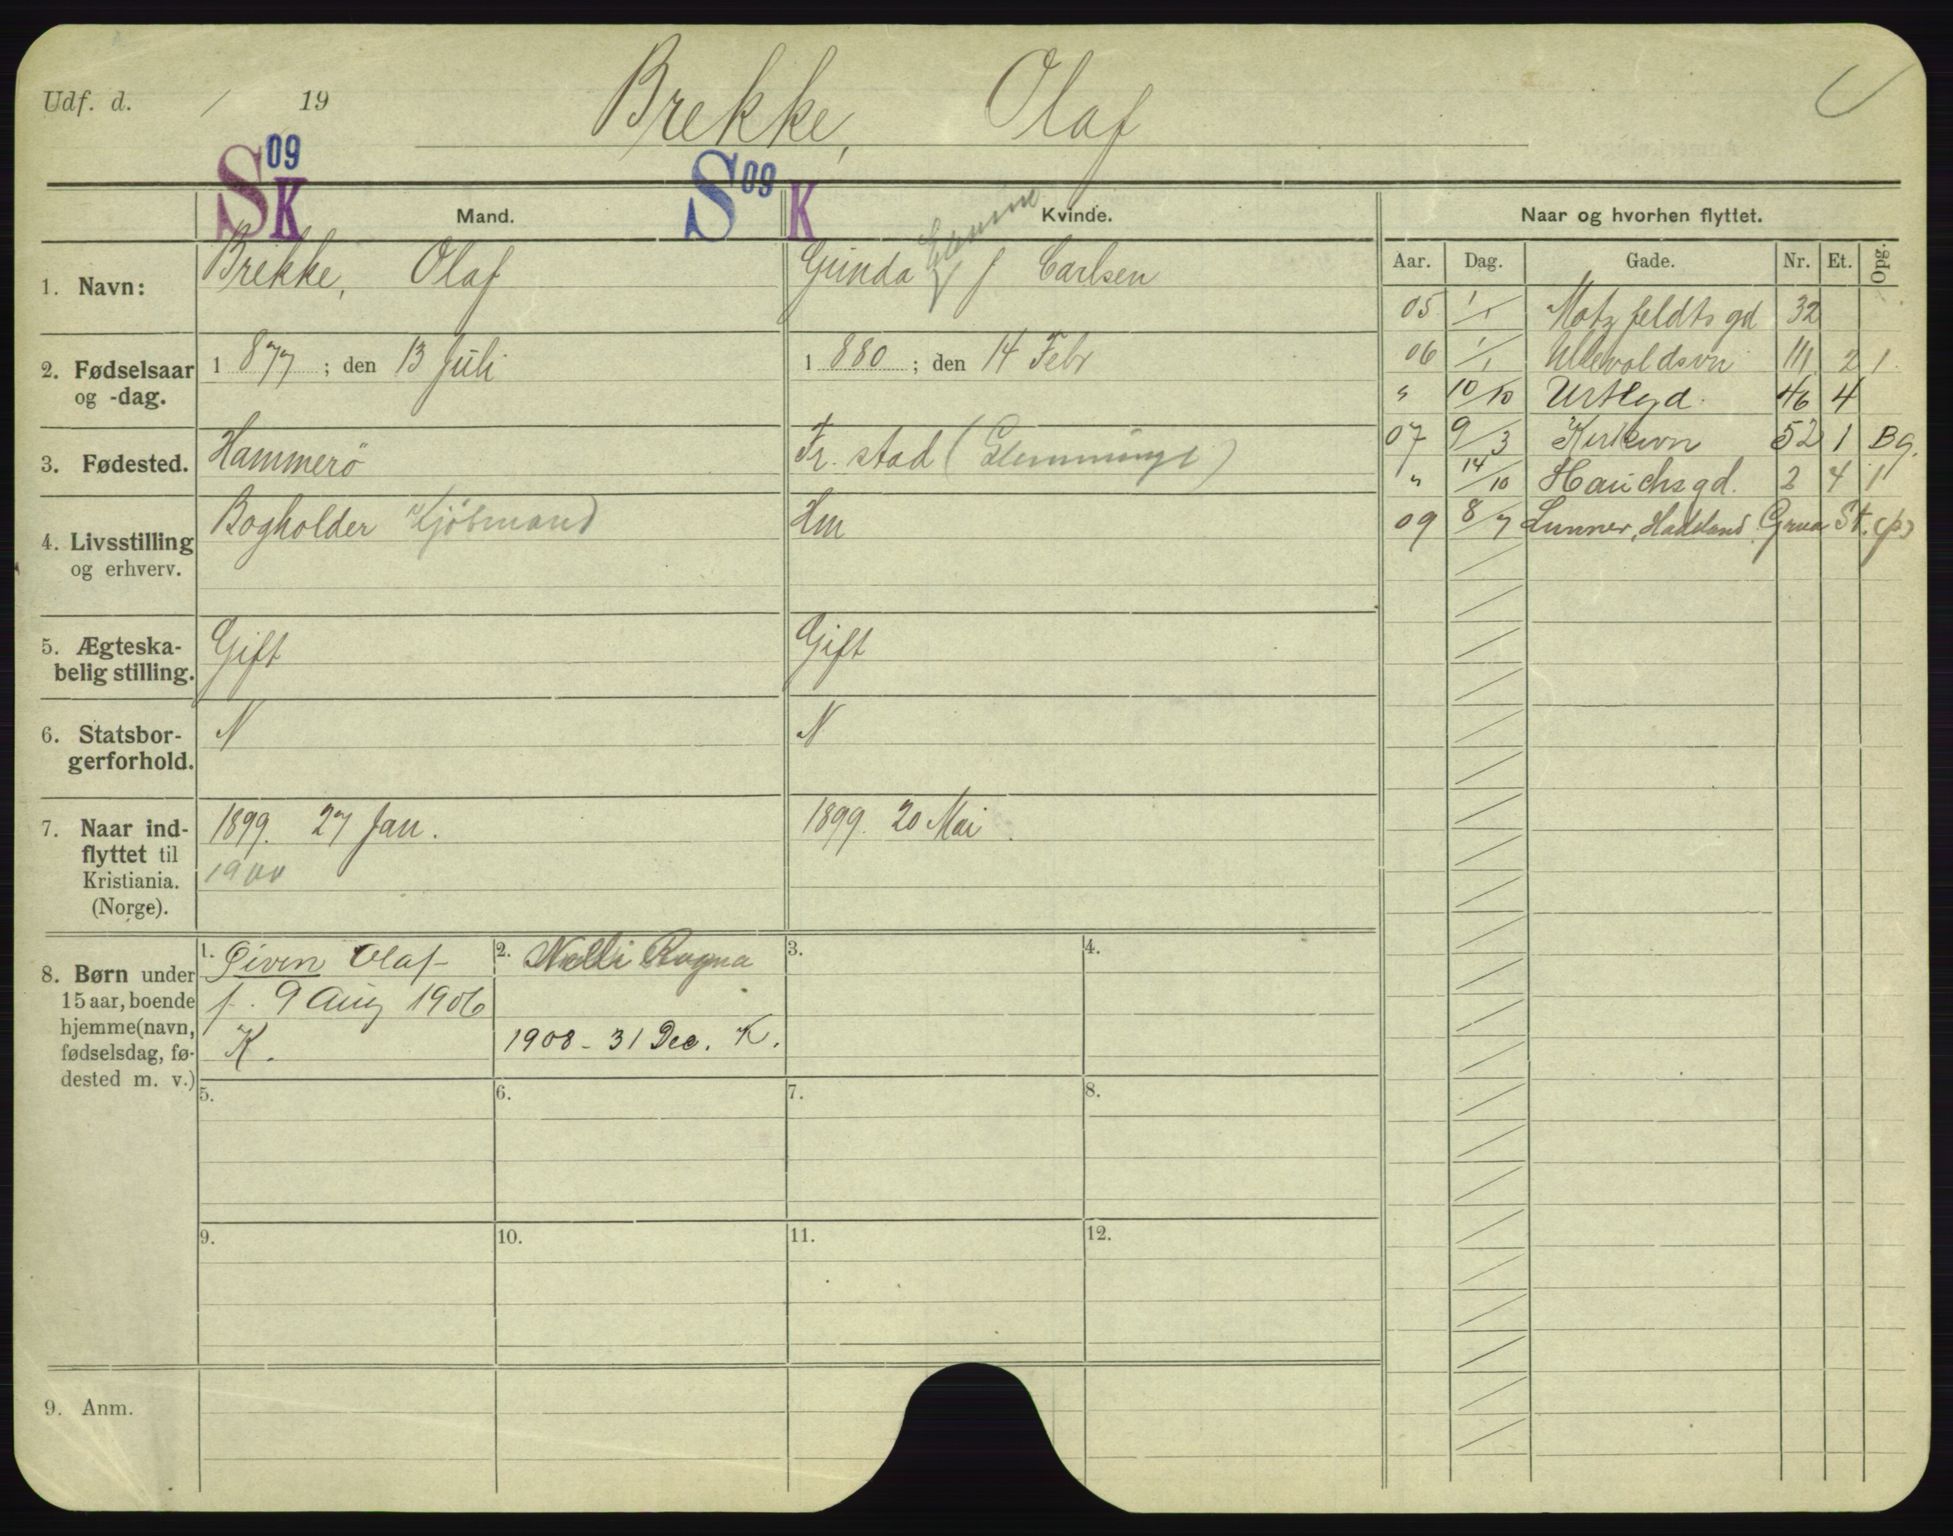 Udf. d. / 19
Brekke, Olaf
S 09 K
Mand.
S 09 K
Kvinde.
Naar og hvorhen flyttet.
Aar. Dag. Gade. Nr. Et. Opg.
1. Navn:
Brekke, Olaf
Gunda f Carlsen
2. Fødselsaar
og -dag.
1 877 ; den 13 Juli
1 880 ; den 14 Febr
3. Fødested.
Hammerö
Fr. stad (Glemminge)
4. Livsstilling
og erhverv.
Bogholder Kjøbmand
Hm
5. Ægteska-
belig stilling.
Gift
Gift
6. Statsbor-
gerforhold.
N
N
7. Naar ind-
flyttet til
Kristiania.
(Norge).
1899. 27 Jan.
1900
1899. 20 Mai.
8. Børn under
15 aar, boende
hjemme (navn,
fødselsdag, fø-
dested m. v.)
1. Olaf
f. 9 Aug 1906
K.
2. Nelli Ragna
1908 - 31 Dec. K.
3.
4.
5.
6.
7.
8.
9.
10.
11.
12.
9. Anm.
05 1/1 Motzfeldts gd 32
06 1/1 Ullevoldsvn 111 2 1
" 10/10 Urtegd. 46 4
07 9/3 Kirkevn 52 1 Bg.
" 14/10 Hauchsgd. 2 4 1
09 8/7 Lunner, Hadeland Grua St. (p)